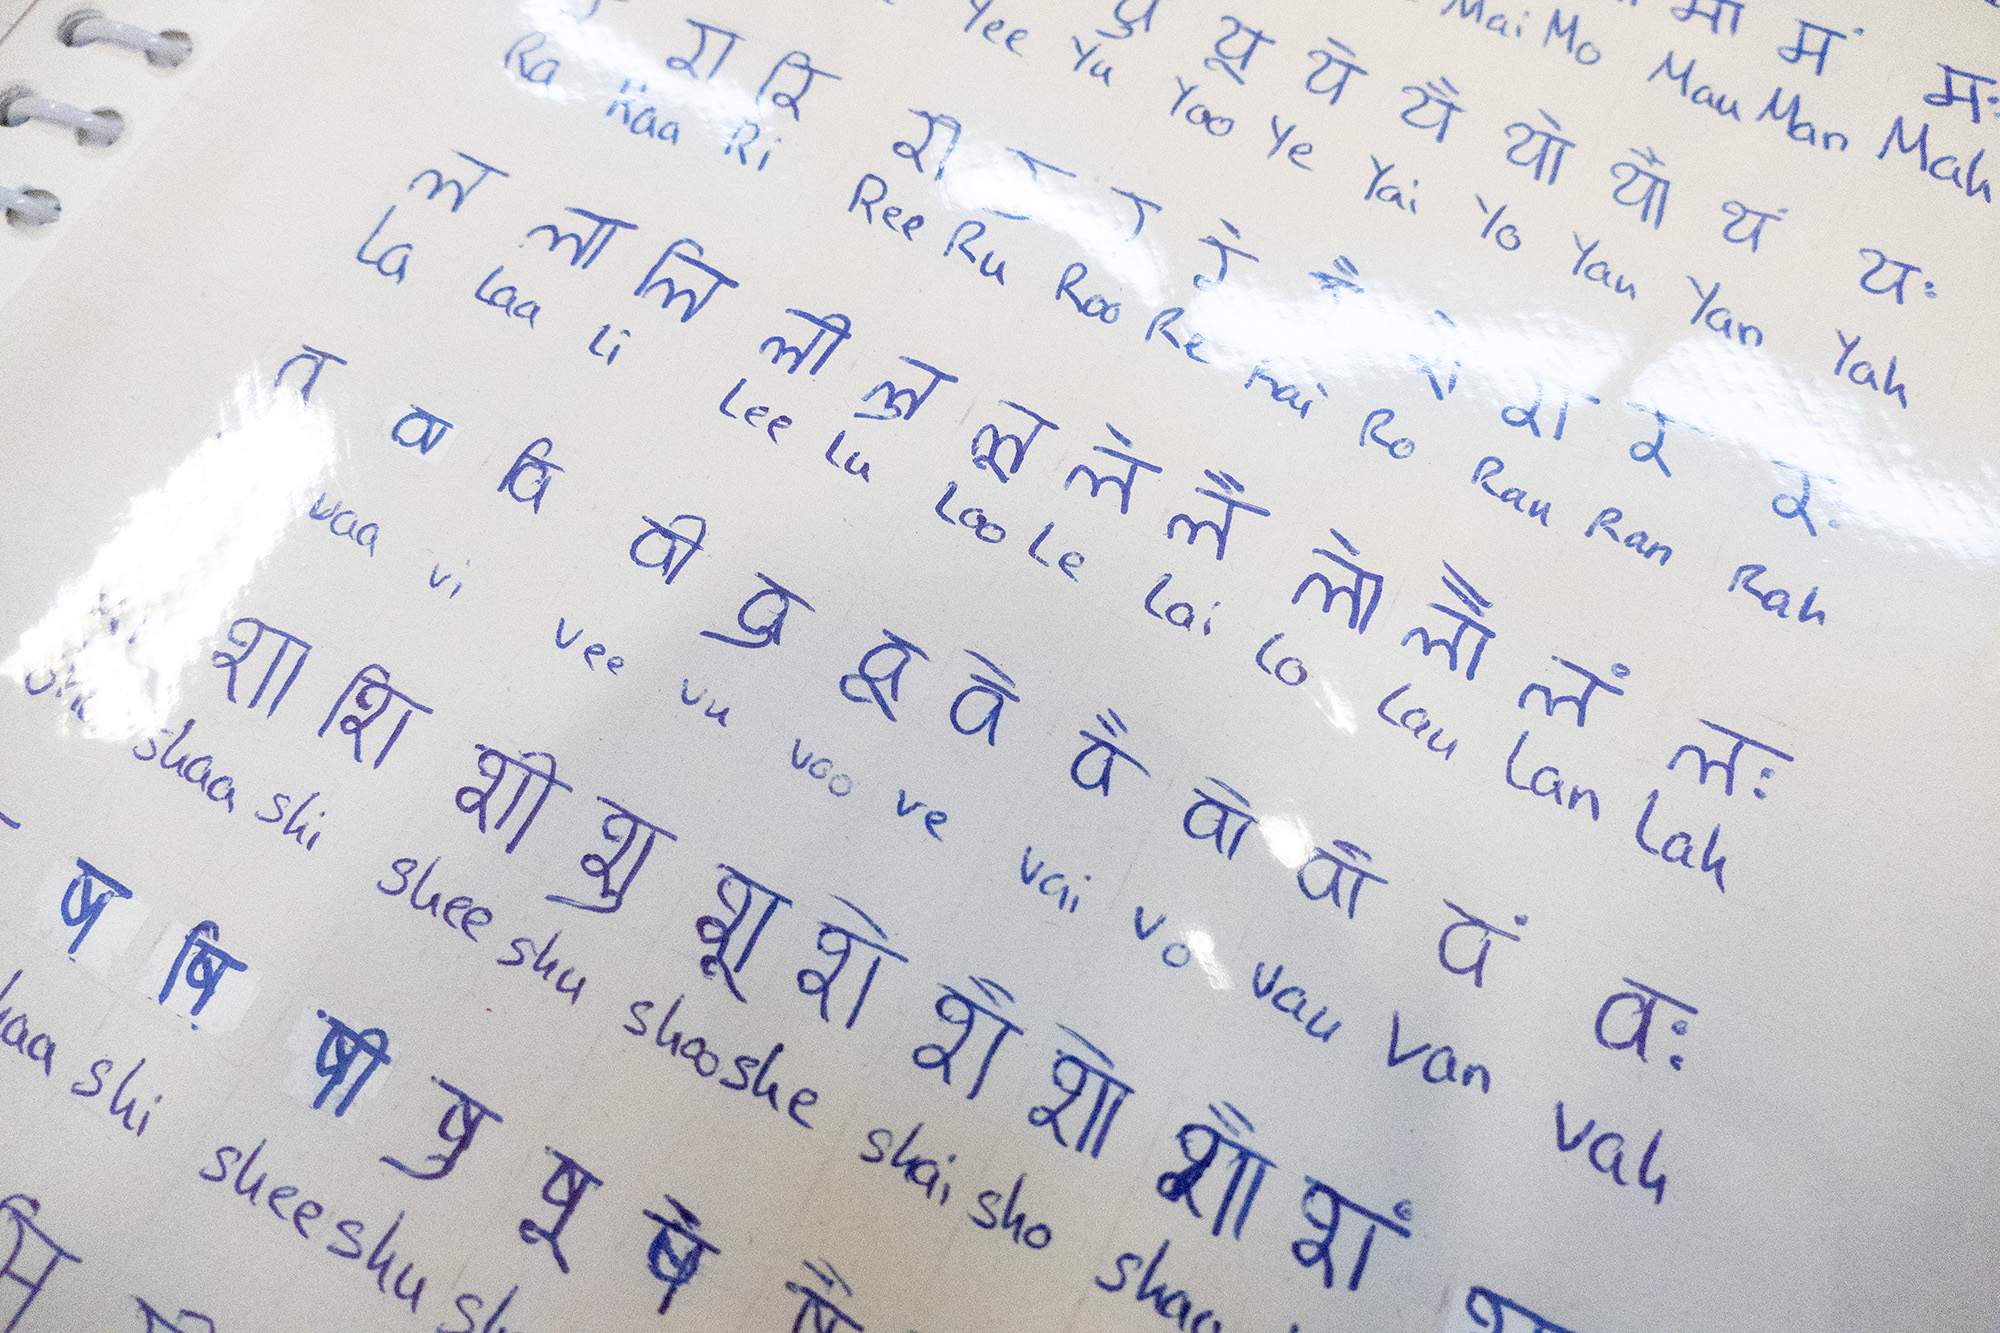 मां मः
Mai Mo Mau Man Mah
यु यू ये यै यो यौ यं यः
Yee Yu Yoo Ye Yai Yo Yau Yan Yah
रा रि री रे रै रो रौ रं रः
Ra Raa Ri Ree Ru Roo Re Rai Ro Rau Ran Rah
ल ला लि ली लु लू ले लै लो लौ लं लः
La Laa Li Lee Lu Loo Le Lai Lo Lau Lan Lah
व वा वि वी वु वू वे वै वो वौ वं वः
vaa vi vee vu voo ve vai vo vau van vah
शा शि शी शु शू शे शै शो शौ शं
shaa shi shee shu shoo she shai sho shau
ष षि षी षु षू षे षै
shi shee shu